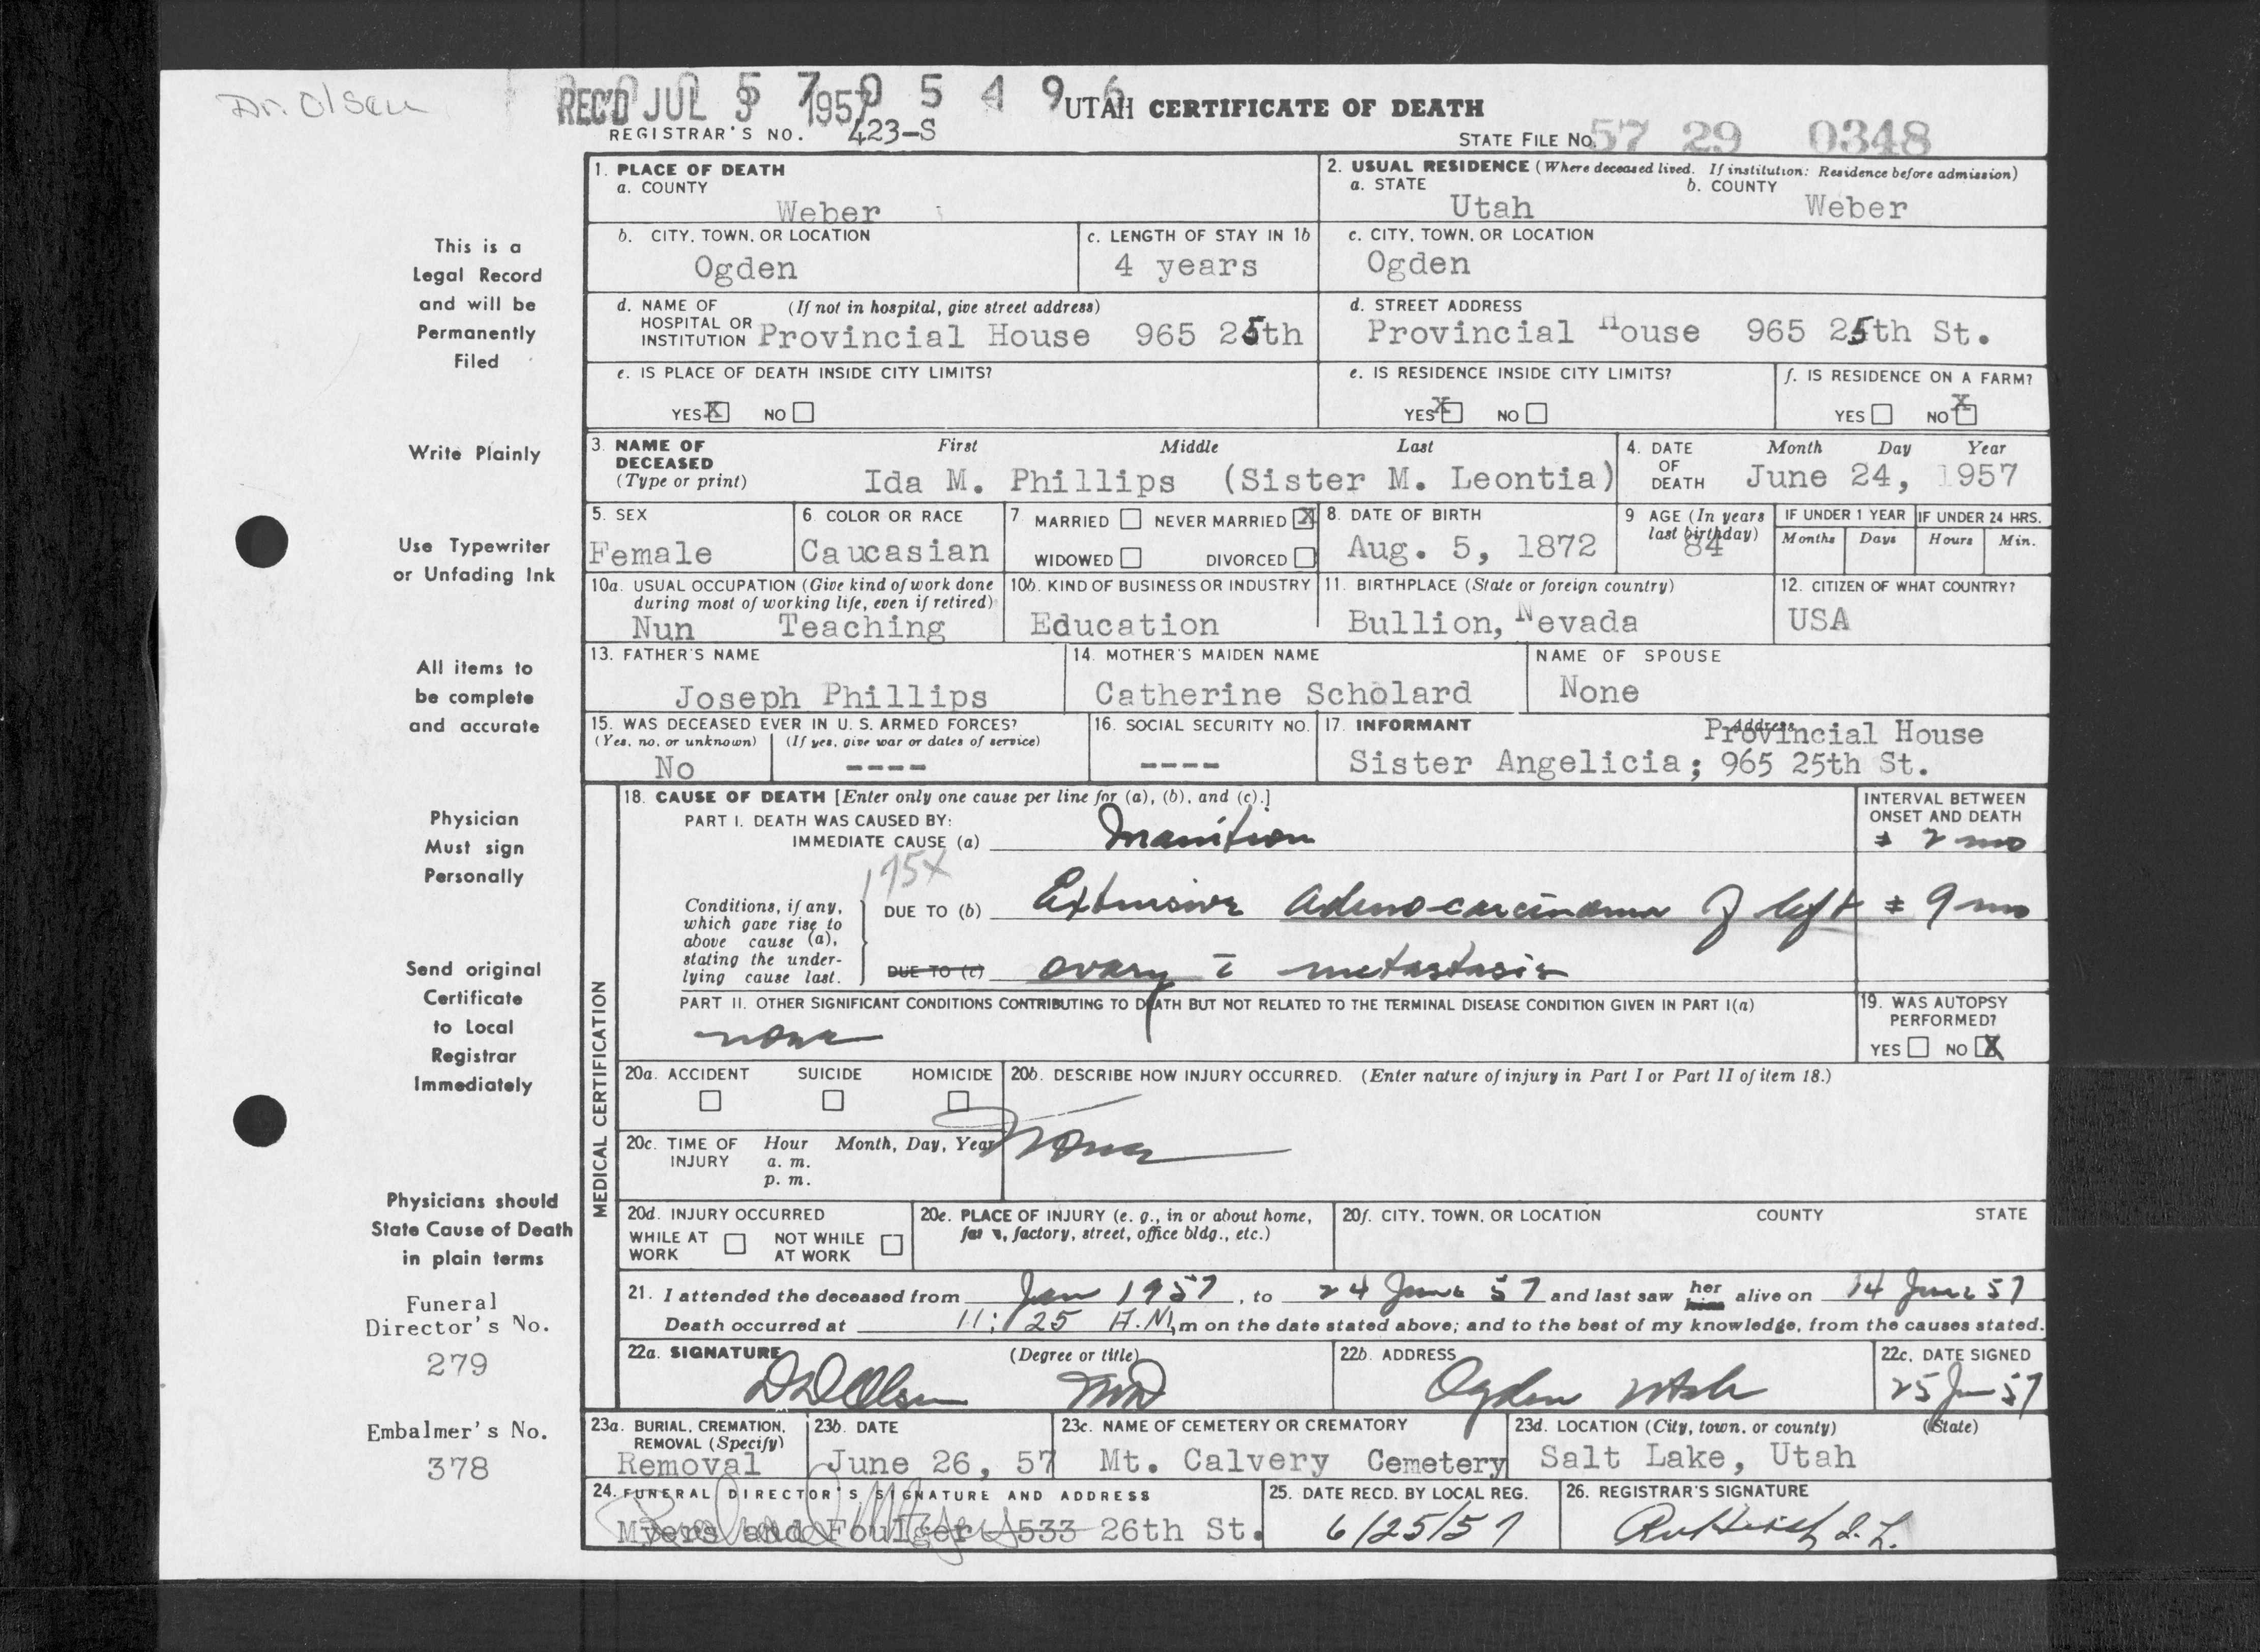 Dr. Olsen
REC'D JUL 5 1957
REGISTRAR'S NO. 423-S
UTAH CERTIFICATE OF DEATH
STATE FILE NO. 57 29 0348
1. PLACE OF DEATH
a. COUNTY
Weber
2. USUAL RESIDENCE (Where deceased lived. If institution: Residence before admission)
a. STATE b. COUNTY
Utah Weber
b. CITY, TOWN, OR LOCATION
Ogden
c. LENGTH OF STAY IN 1b
4 years
c. CITY, TOWN, OR LOCATION
Ogden
d. NAME OF (If not in hospital, give street address)
HOSPITAL OR
INSTITUTION Provincial House 965 25th
d. STREET ADDRESS
Provincial House 965 25th St.
e. IS PLACE OF DEATH INSIDE CITY LIMITS?
YES X NO
e. IS RESIDENCE INSIDE CITY LIMITS?
YES X NO
f. IS RESIDENCE ON A FARM?
YES NO X
3. NAME OF DECEASED (Type or print)
First Middle Last
Ida M. Phillips (Sister M. Leontia)
4. DATE OF DEATH
Month Day Year
June 24, 1957
5. SEX
Female
6. COLOR OR RACE
Caucasian
7. MARRIED NEVER MARRIED X
WIDOWED DIVORCED
8. DATE OF BIRTH
Aug. 5, 1872
9 AGE (In years last birthday)
84
IF UNDER 1 YEAR IF UNDER 24 HRS.
Months Days Hours Min.
10a. USUAL OCCUPATION (Give kind of work done
during most of working life, even if retired)
Nun Teaching
10b. KIND OF BUSINESS OR INDUSTRY
Education
11. BIRTHPLACE (State or foreign country)
Bullion, Nevada
12. CITIZEN OF WHAT COUNTRY?
USA
13. FATHER'S NAME
Joseph Phillips
14. MOTHER'S MAIDEN NAME
Catherine Scholard
NAME OF SPOUSE
None
15. WAS DECEASED EVER IN U. S. ARMED FORCES?
(Yes, no, or unknown) (If yes, give war or dates of service)
No ----
16. SOCIAL SECURITY NO.
----
17. INFORMANT Address
Provincial House
Sister Angelicia; 965 25th St.
MEDICAL CERTIFICATION
18. CAUSE OF DEATH [Enter only one cause per line for (a), (b), and (c).]
PART I. DEATH WAS CAUSED BY:
IMMEDIATE CAUSE (a) Inanition
INTERVAL BETWEEN
ONSET AND DEATH
± 2 mo
175X
Conditions, if any,
which gave rise to
above cause (a),
stating the under-
lying cause last.
DUE TO (b) Extensive adeno-carcinoma of left ± 9 mo
DUE TO (c) ovary c̄ metastasis
PART II. OTHER SIGNIFICANT CONDITIONS CONTRIBUTING TO DEATH BUT NOT RELATED TO THE TERMINAL DISEASE CONDITION GIVEN IN PART I(a)
none
19. WAS AUTOPSY
PERFORMED?
YES NO X
20a. ACCIDENT SUICIDE HOMICIDE
20b. DESCRIBE HOW INJURY OCCURRED. (Enter nature of injury in Part I or Part II of item 18.)
None
20c. TIME OF INJURY Hour Month, Day, Year
a. m.
p. m.
20d. INJURY OCCURRED
WHILE AT WORK NOT WHILE AT WORK
20e. PLACE OF INJURY (e. g., in or about home,
factory, street, office bldg., etc.)
20f. CITY, TOWN, OR LOCATION COUNTY STATE
21. I attended the deceased from Jan 1957, to 24 June 57 and last saw her him alive on 14 June 57
Death occurred at 11:25 A.M. m on the date stated above; and to the best of my knowledge, from the causes stated.
22a. SIGNATURE (Degree or title)
D D Olsen MD
22b. ADDRESS
Ogden Utah
22c. DATE SIGNED
25 Jun 57
23a. BURIAL, CREMATION,
REMOVAL (Specify)
Removal
23b. DATE
June 26, 57
23c. NAME OF CEMETERY OR CREMATORY
Mt. Calvery Cemetery
23d. LOCATION (City, town, or county) (State)
Salt Lake, Utah
24. FUNERAL DIRECTOR'S SIGNATURE AND ADDRESS
Myers and Foulger 533 26th St.
25. DATE RECD. BY LOCAL REG.
6/25/57
26. REGISTRAR'S SIGNATURE
This is a
Legal Record
and will be
Permanently
Filed
Write Plainly
Use Typewriter
or Unfading Ink
All items to
be complete
and accurate
Physician
Must sign
Personally
Send original
Certificate
to Local
Registrar
Immediately
Physicians should
State Cause of Death
in plain terms
Funeral
Director's No.
279
Embalmer's No.
378